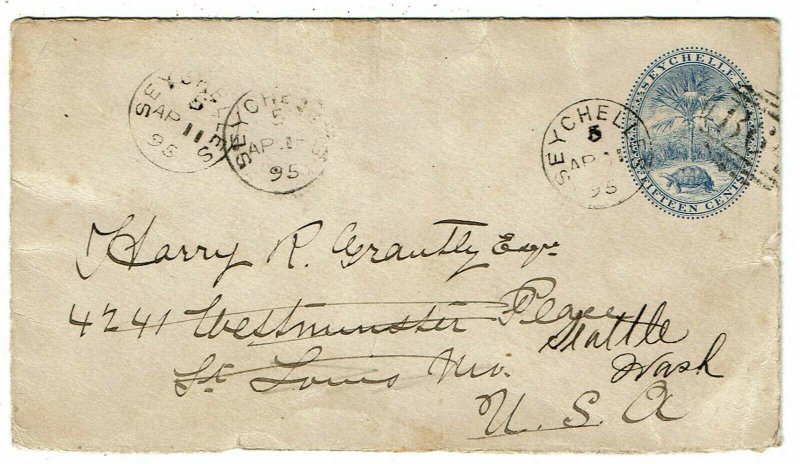 SEYCHELLES
5
AP 11
95
SEYCHELLES
5
AP 11
95
SEYCHELLES
5
AP 11
95
SEYCHELLES
FIFTEEN CENTS
Harry R. Grantly Esqr.
4241 Westminster Place
Seattle
St Louis Mo.
Wash
U. S. A